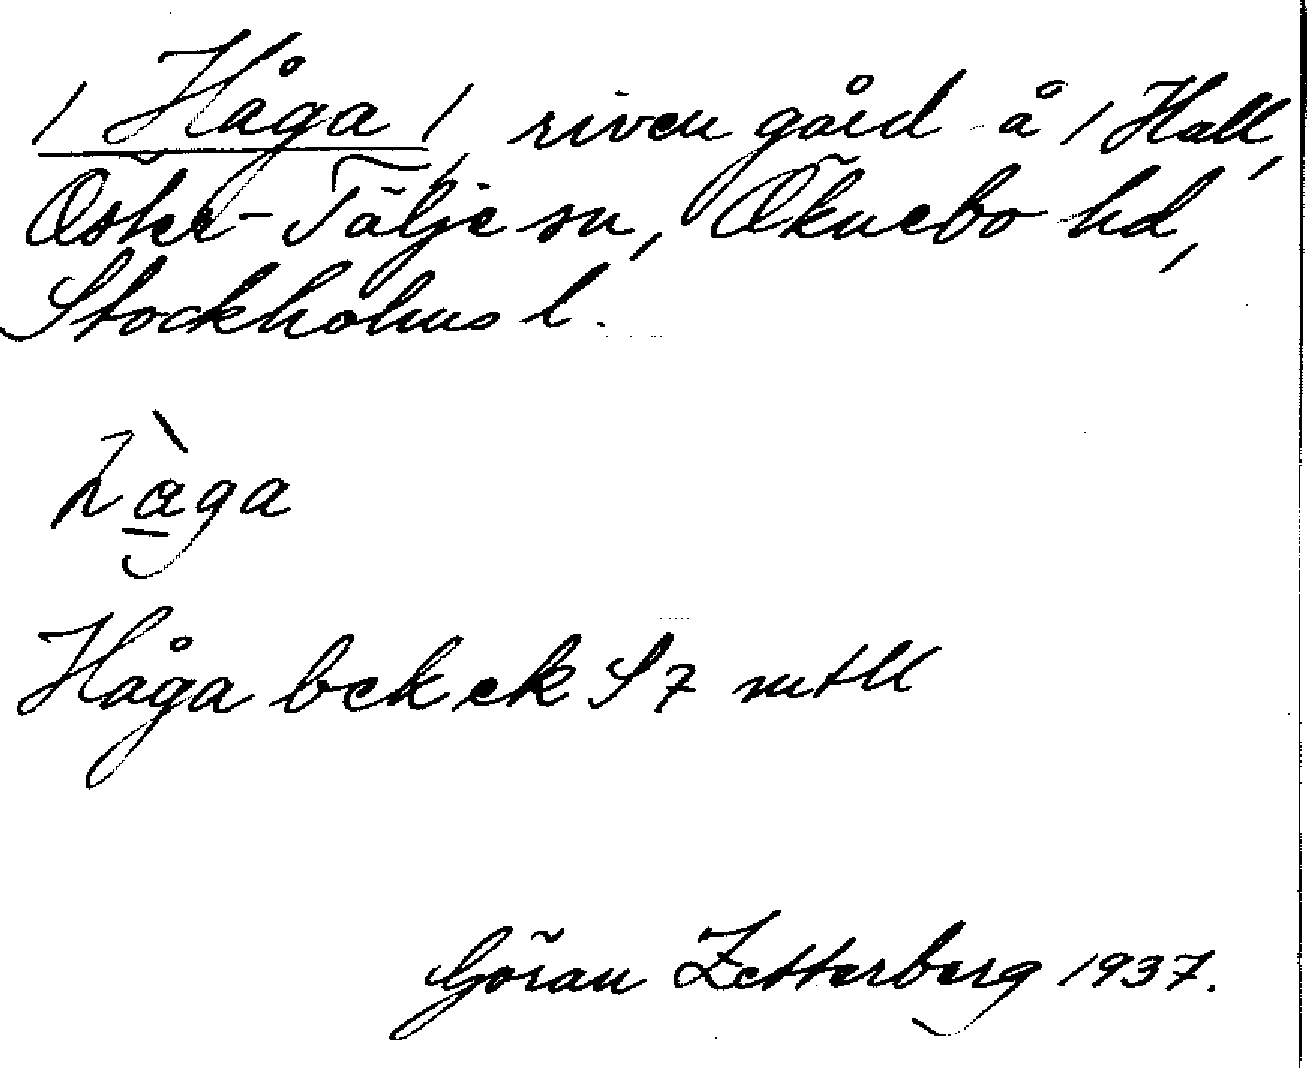 / Håga /, riven gård å / Hall,
Öster-Tälje sn, Öknebo hd,
Stockholms l.
hàga
Håga bek ek S 7 mtll
Göran Zetterberg 1937.